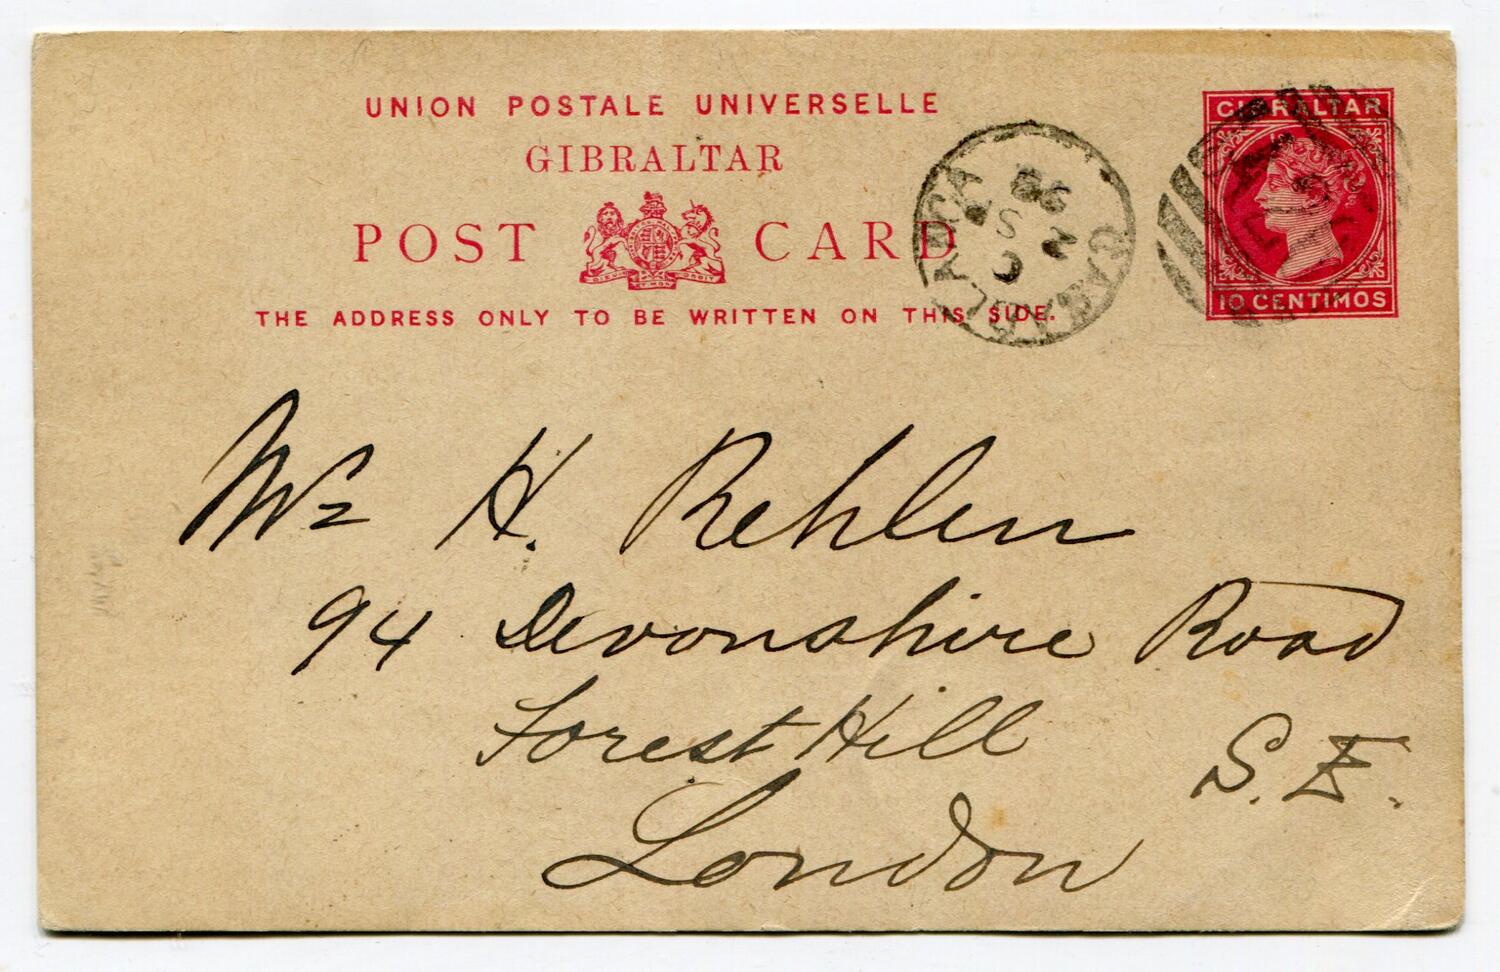 UNION POSTALE UNIVERSELLE
GIBRALTAR
POST CARD
THE ADDRESS ONLY TO BE WRITTEN ON THIS SIDE.
CASABLANCA
C
SP 2
98
GIBRALTAR
10 CENTIMOS
Mr H. Rehlen
94 Devonshire Road
Forest Hill
S.E.
London